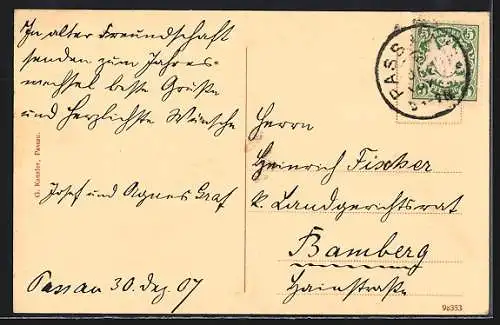 In alter Freundschaft
senden zum Jahres-
wechsel beste Grüße
und herzlichste Wünsche
Josef und Agnes Graf
Passau 30. Dez. 07
G. Kanzler, Passau.
5 5
PASS
Herrn
Heinrich Fischer
k. Landgerichtsrat
Bamberg
Hainstraße
9a353